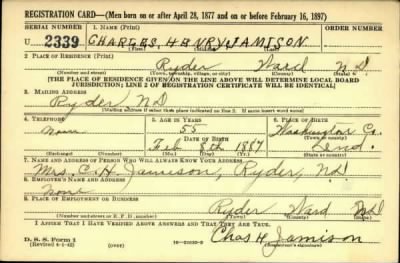 REGISTRATION CARD—(Men born on or after April 28, 1877 and on or before February 16, 1897)
SERIAL NUMBER 1. NAME (Print) ORDER NUMBER
U 2339 CHARLES, HENRY JAMISON.
(First) (Middle) (Last)
2. PLACE OF RESIDENCE (Print)
Ryder Ward N D
(Number and street) (Town, township, village, or city) (County) (State)
[THE PLACE OF RESIDENCE GIVEN ON THE LINE ABOVE WILL DETERMINE LOCAL BOARD
JURISDICTION; LINE 2 OF REGISTRATION CERTIFICATE WILL BE IDENTICAL]
3. MAILING ADDRESS
Ryder, ND
(Mailing address if other than place indicated on line 2. If same insert word same)
4. TELEPHONE 5. AGE IN YEARS 6. PLACE OF BIRTH
None 55 Washington Co.
DATE OF BIRTH (Town or county)
Feb 8th 1887 Ind.
(Mo.) (Day) (Yr.) (State or country)
7. NAME AND ADDRESS OF PERSON WHO WILL ALWAYS KNOW YOUR ADDRESS
Mrs. C. H. Jamison, Ryder, Nd
8. EMPLOYER'S NAME AND ADDRESS
None
9. PLACE OF EMPLOYMENT OR BUSINESS
Ryder Ward ND
(Number and street or R. F. D. number) (Town) (County) (State)
I AFFIRM THAT I HAVE VERIFIED ABOVE ANSWERS AND THAT THEY ARE TRUE.
D. S. S. Form 1 Chas H Jamison
(Revised 4-1-42) (over) (Registrant's signature)